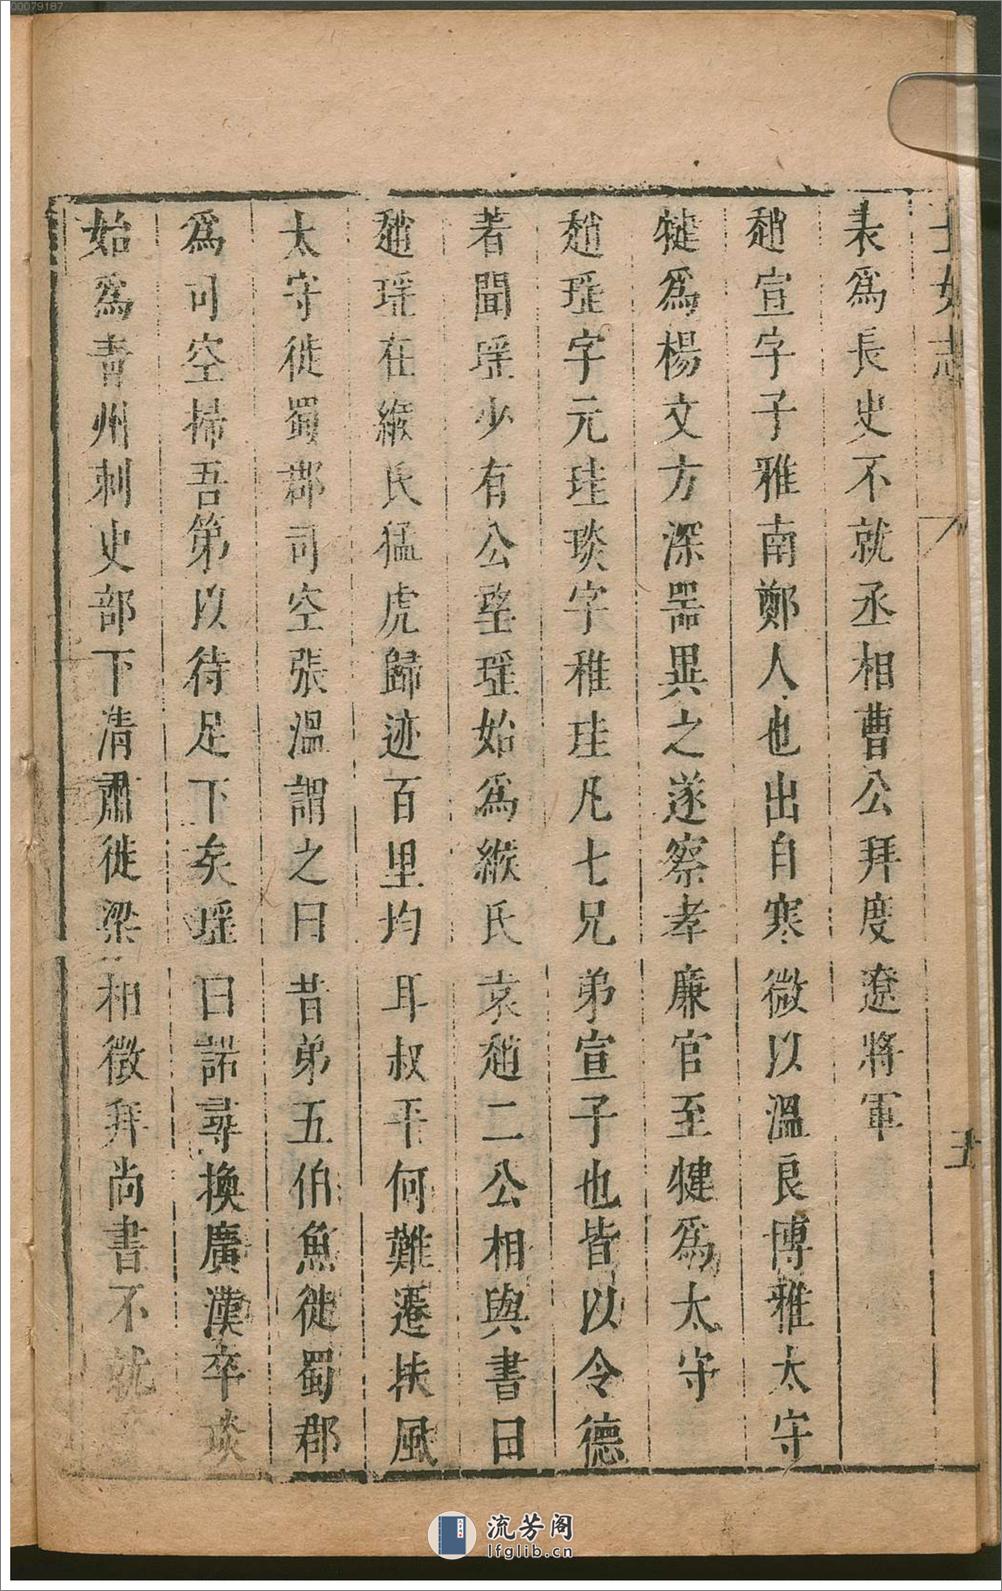 士女志
五
表為長史不就丞相曹公拜度遼將軍
趙宣字子雅南鄭人也出自寒微以溫良博雅太守
犍為楊文方深器異之遂察孝廉官至犍為太守
趙瑶字元珪琰字稚珪凡七兄弟宣子也皆以令德
著聞瑶少有公望瑶始為緱氏袁趙二公相與書曰
趙瑶在緱氏猛虎歸迹百里均耳叔平何難遷扶風
太守徙蜀郡司空張溫謂之曰昔弟五伯魚徙蜀郡
為司空掃吾第以待足下矣瑶曰諾尋換廣漢卒琰
始為青州刺史部下清肅徙梁相徵拜尚書不就
00079187
流芳阁
lfglib.cn